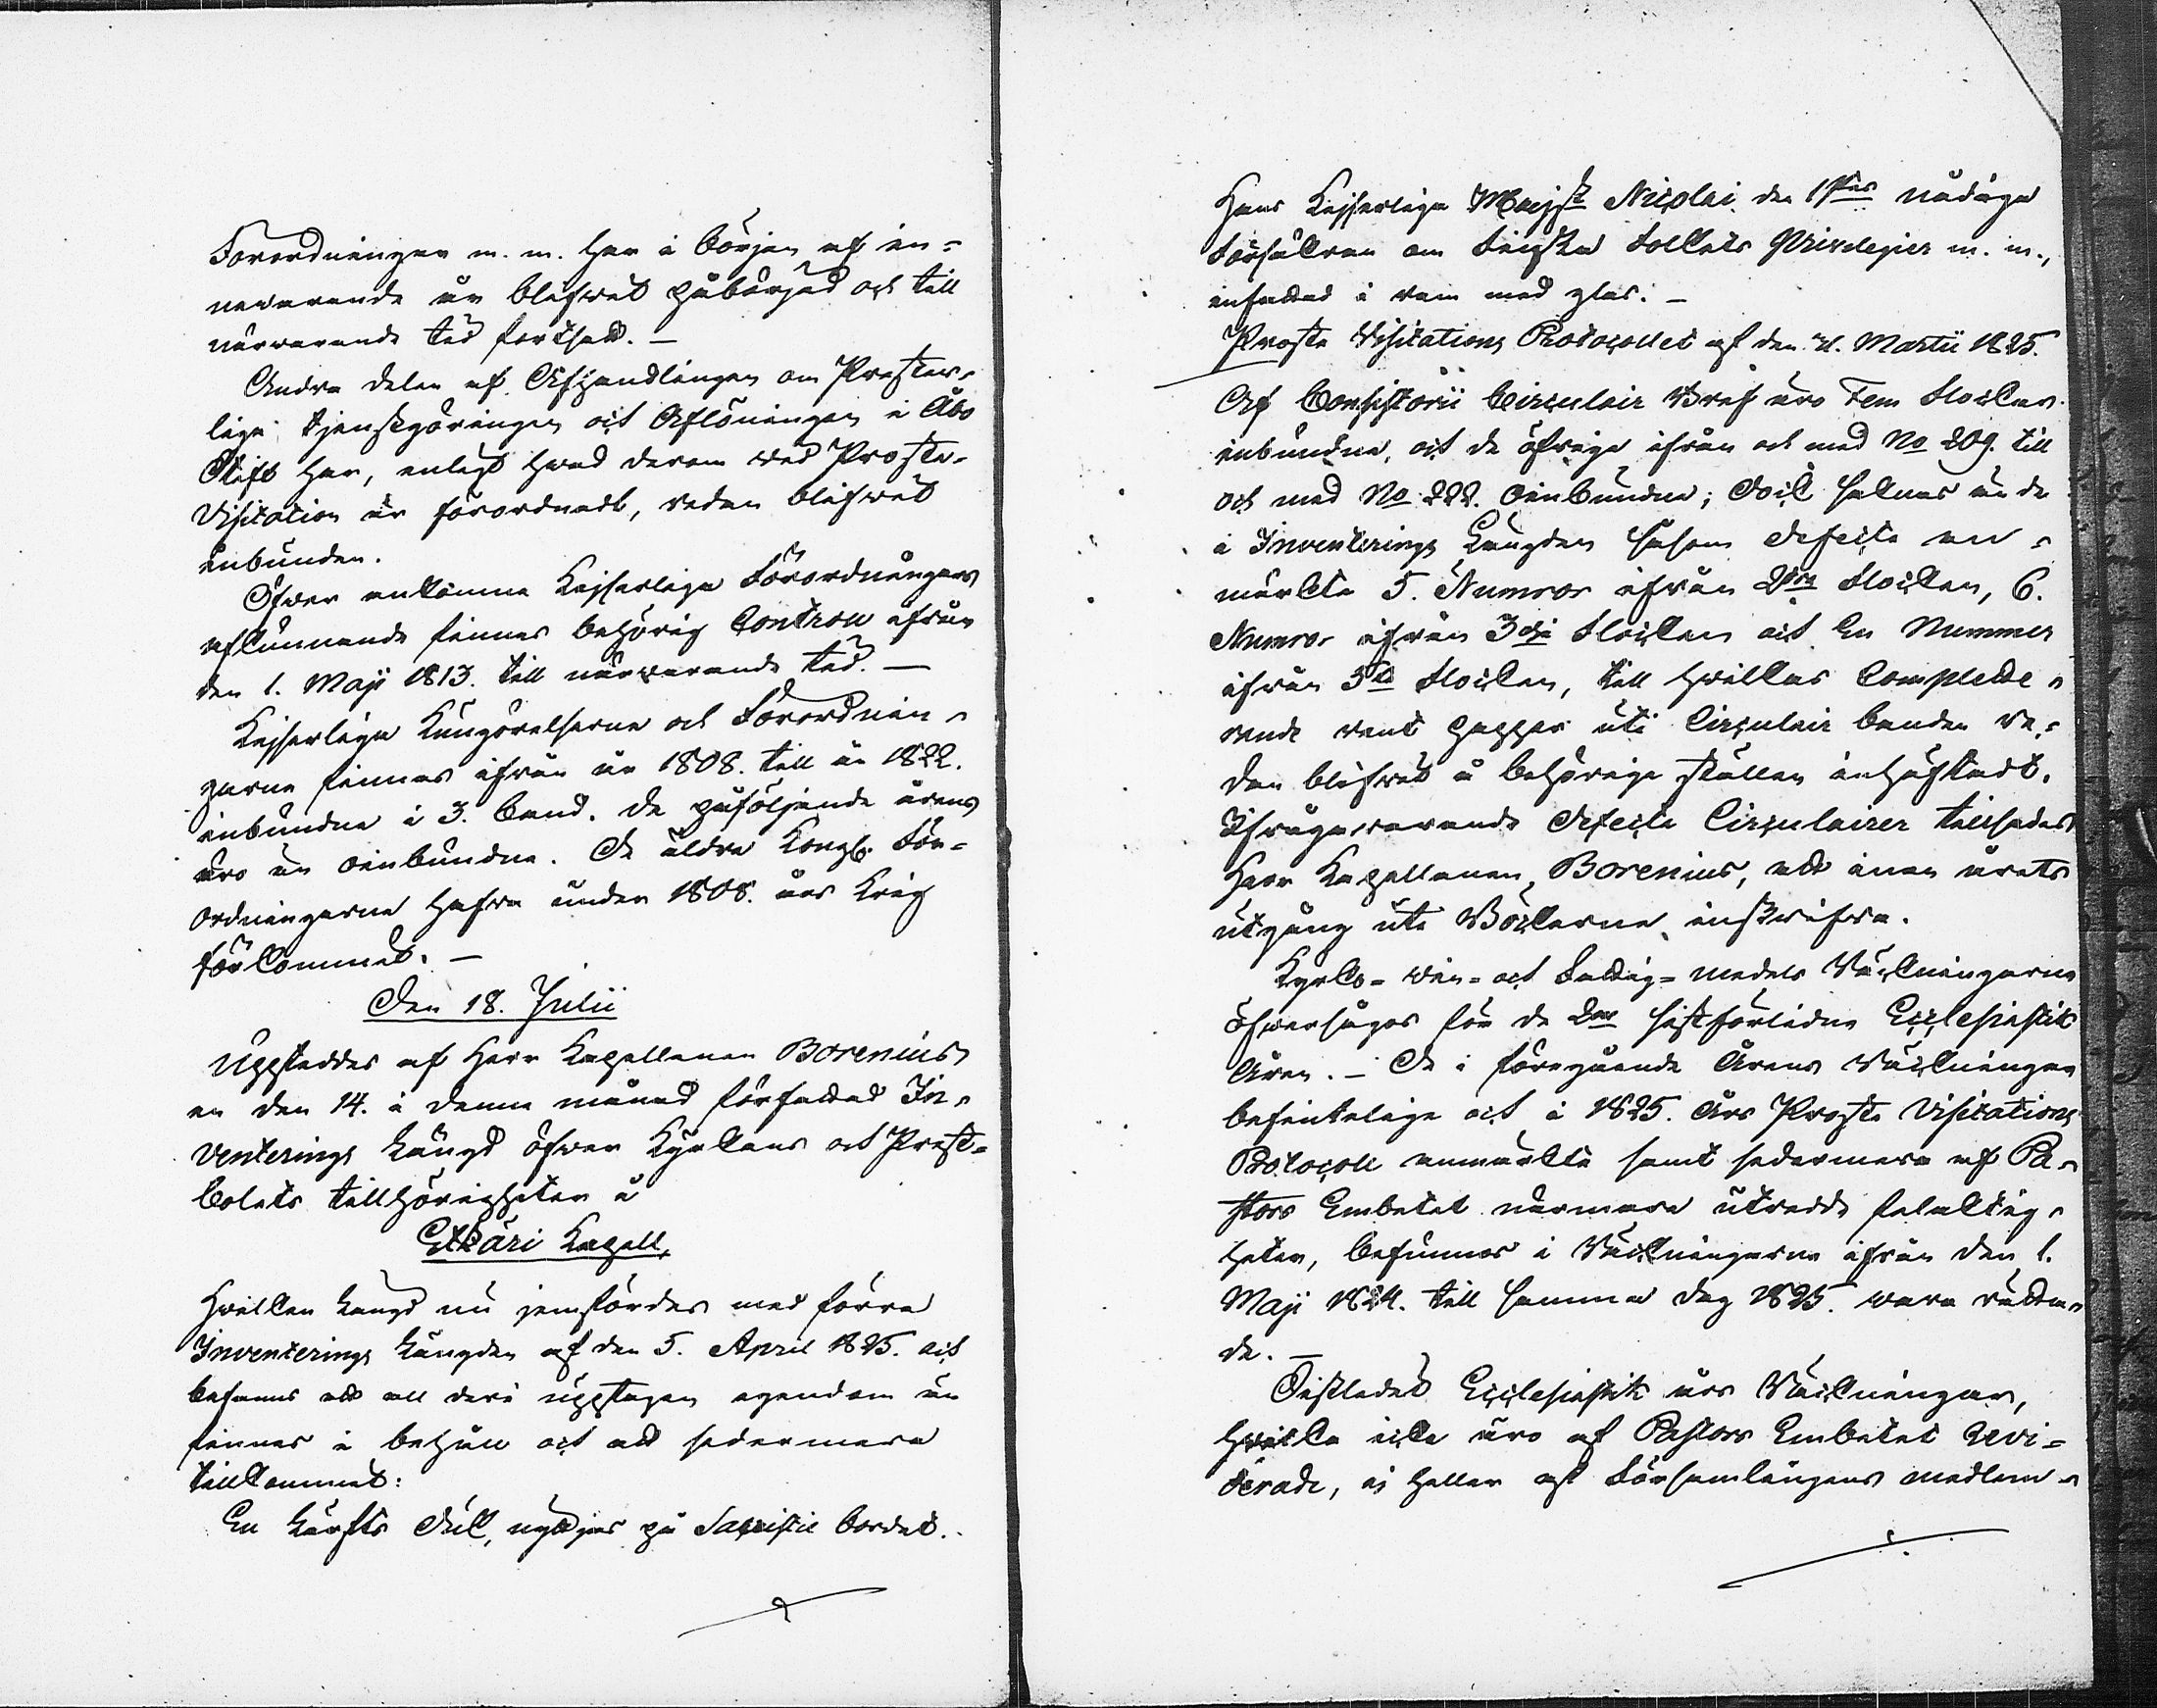 Forordningar m. m. har i början af in-
newarande år blifwit påbörjad och till
närwarande tid fortsatt. —
Andra delen af Afhandlingen om Prester-
liga tjenstgöringen och Aflöningen i Åbo
Stift har, enligt hwad derom wid Prosta-
Visitation är förordnadt, redan blifwit
inbunden.
Öfwer ankomne Kejserliga Förordningars
afkunnande finnes behörig Controll ifrån
den 1. Maji 1813. till närwarande tid. —
Kejserliga Kungörelserna och Förordnin-
garna finnas ifrån år 1808. till år 1822.
inbundna i 3. band. De påföljande årens
äro än oinbundne. De äldre Kongl. För-
ordningarna hafwa under 1808. års Krig
förkommit. —
Den 18. Julii
Uppteddes af Herr Kapellanen Borenius
en den 14. i denne månad författad In-
venterings Längd öfwer Kyrkans och Prest-
bolets tillhörigheter i
Etseri Kapell,
Hwilken Längd nu jemfördes med förra
Inventerings Längden af den 5. April 1825. och
befanns att all deri upptagen egendom än
finnes i behåll och att sedermera
tillkommit:
En Lärfts Duk, nyttjas på Sacristie bordet.
Hans Kejserliga Majst Nicolai den 1stes nådiga
Försäkran om Finska Folkets Privilegier m. m.,
infattad i ram med glas. —
Prosta Visitations Protocollet af den 21. Martii 1825.
Af Consistorii Circulair Bref äro Fem Stocken
inbundne, och de öfriga ifrån och med No 209. till
och med No 222. oinbundne; dock saknas än de
i Inventerings Längden såsom defecta an-
märkte 5. Numror ifrån 2dra Stocken, 6.
Numror ifrån 3dje Stocken och En Nummer
ifrån 5te Stocken, till hwilkas complette-
rande rent papper uti Circulair banden re-
dan blifwit å behöriga ställen inhäftadt.
Ifrågawarande defecta Circulairer tillsades
Herr Kapellanen Borenius, att innan årets
utgång uti Böckerna inskrifwa.
Kyrko- Win- och Fattig- medels Räkningarne
öfwersågos för de 2ne sistförledne Ecclesiastik
Åren. — De i föregående Årens Räkningar
befinteliga och i 1825. Års Prosta Visitations
Protocoll anmärkta samt sedermera af Pa-
stors Embetet närmare utredde felaktig-
heter, befunnos i Räkningarna ifrån den 1.
Maji 1824. till samma dag 1825. wara rätta-
de. —
Sistledet Ecclesiastik års Räkningar,
hwilka icke äro af Pastors Embetet revi-
derade, ej heller af Församlingens medlem-